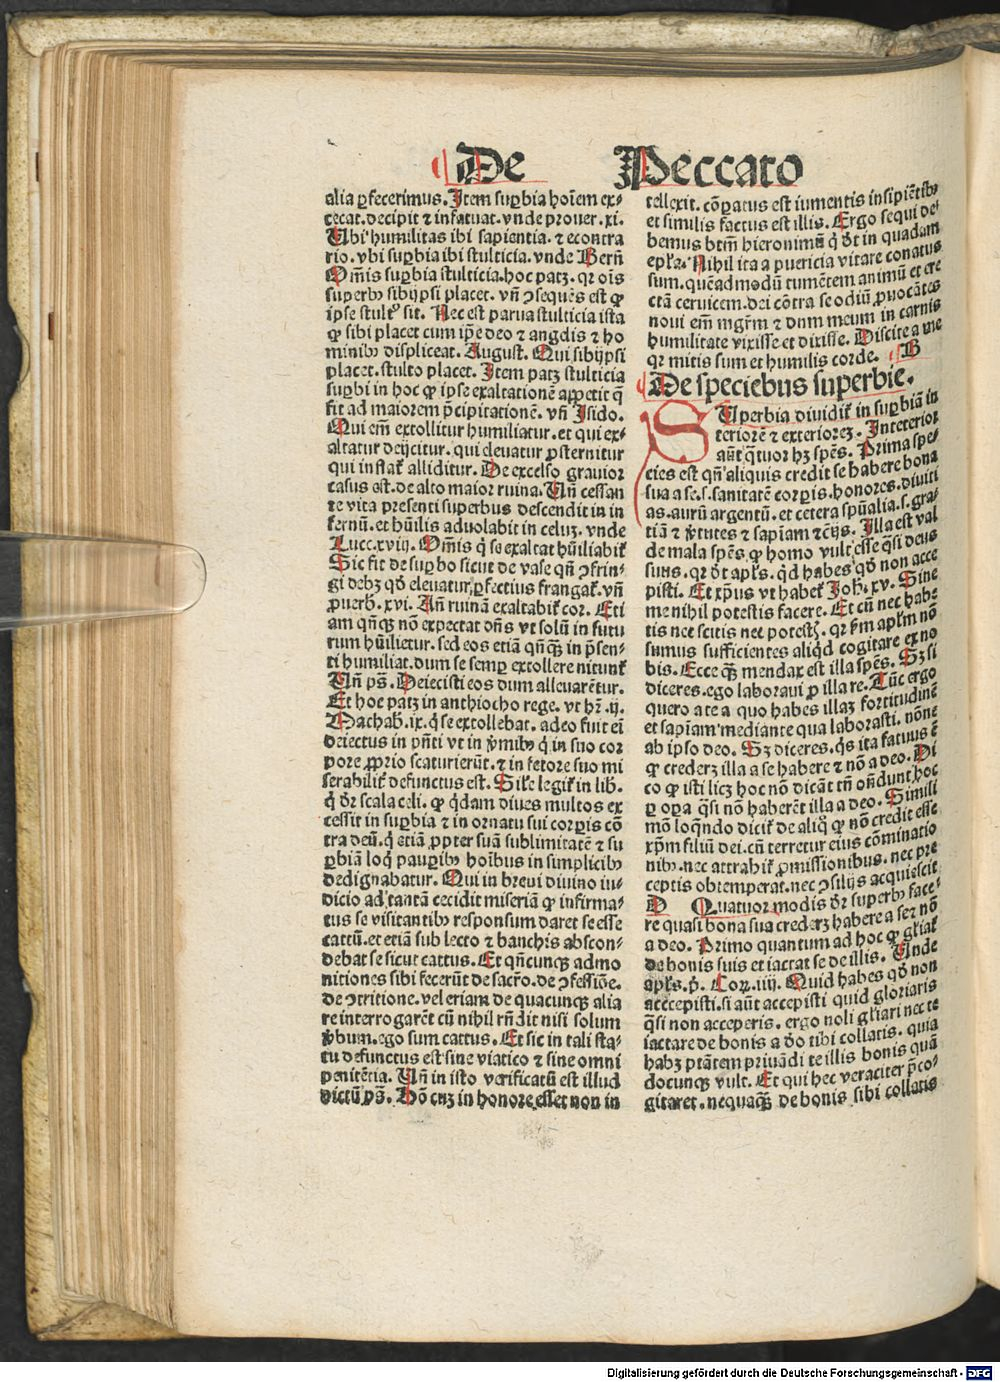 De Peccato
alia ꝑfecerimus. Item suꝑbia hoīem ex⸗
cecat. decipit ⁊ infatuat. vnde prouer. xi.
Ubi humilitas ibi sapientia. ⁊ econtra
rio. vbi suꝑbia ibi stulticia. vnde Bern̄
Om̄is suꝑbia stulticia. hoc patꝫ. qꝛ oīs
superbꝰ sibijpsi placet. vn̄ ꝯsequēs est ꝙ
ipse stultꝰ sit. Nec est parua stulticia ista
ꝙ sibi placet cum ip̄e deo ⁊ angelis ⁊ ho
minibꝰ displiceat. August. Qui sibijpsi
placet. stulto placet. Item patꝫ stulticia
suꝑbi in hoc ꝙ ipse exaltationē appetit q̄
fit ad maiorem p̄cipitationē. vn̄ Isido.
Qui em̄ extollitur humiliatur. et qui ex⸗
altatur deijcitur. qui eleuatur ꝓsternitur
qui inflat̃ alliditur. De excelso grauior
casus est. de alto maior ruina. Un̄ cessan
te vita presenti superbus descendit in in
fernū. et hūilis aduolabit in celuꝫ. vnde
Luce.xviij. Om̄is q̇ se exaltat hūiliabit̃
Sic fit de suꝑbo sicut de vase qn̄ ꝯfrin⸗
gi debꝫ qd̓ eleuatur, ꝑfectius frangat̃. vn̄
ꝓuerb̓. xvi. An̄ ruinā exaltabit̃ cor. Eti
am qn̄qꝫ nō expectat dn̄s vt solū in futu
rum hūilietur. sed eos etiā qn̄qꝫ in p̄sen⸗
ti humiliat. dum se semꝑ extollere nitunt̃
Un̄ ps̄. Deiecisti eos dum alleuarētur.
Et hoc patꝫ in anthiocho rege. vt hr̄. ij.
Machab̓. ix. q̇ se extollebat. adeo fuit ei᷒
deiectus in pn̄ti vt in v̓mibꝰ q̇ in suo cor
pore ꝓprio scaturierūt. ⁊ in fetore suo mi
serabilit̃ defunctus est. Sil̓e legit̃ in lib̓.
q̇ dr̄ scala celi. ꝙ q̇dam diues multos ex
cessit in suꝑbia ⁊ in ornatu sui corꝑis cō
tra deū. q̇ etiā ꝓpter suā sublimitatē ⁊ su
ꝑbiā loq̇ pauꝑibꝰ hoībus in simplicibꝰ
dedignabatur. Qui in breui diuino iu⸗
dicio ad tantā cecidit miseriā ꝙ infirma⸗
tus se visitantibꝰ responsum daret se esse
cattū. et etiā sub lecto ⁊ banchis abscon⸗
debat se sicut cattus. Et qn̄cunqꝫ admo
nitiones sibi fecerūt de sacro. de ꝯfessiōe.
de ꝯtritione. vel etiam de quacunqꝫ alia
re interrogarēt cū nihil rn̄dit nisi solum
v̓bum. ego sum cattus. Et sic in tali sta⸗
tu defunctus est sine viatico ⁊ sine omni
penitētia. Un̄ in isto verificatū est illud
dictū ps̄. Hō cuꝫ in honore esset non in
tellexit. cōꝑatus est iumentis insipiētibꝰ
et similis factus est illis. Ergo sequi de⸗
bemus btm̄ hieronimū q̇ dt̄ in quadam
epl̓a. Nihil ita a puericia vitare conatus
sum. quēadmodū tumētem animū et ere
ctā ceruicem. dei cōtra se odiū ꝓuocātes
noui em̄ mgr̄m ⁊ dn̄m meum in carnis
humilitate vixisse et dixisse. Discite a me
qꝛ mitis sum et humilis corde. B
De speciebus superbie.
SUperbia diuidit̃ in suꝑbiā in
teriorē ⁊ exteriorēꝫ. Interior
aūt q̄tuor hꝫ sp̄es. Prima spe⸗
cies est qn̄ aliquis credit se habere bona
sua a se. s. sanitatē corꝑis. honores. diuiti
as. aurū argentū. et cetera spūalia. s. gra⸗
tiā ⁊ v̓tutes ⁊ sapīam ⁊c̄ijs. Illa est val
de mala sp̄es ꝙ homo vult esse q̄si deus
suus. qꝛ dt̄ apl̓s. qd̓ habes qd̓ non acce
pisti. Et xp̄us vt habet̃ Joh̓. xv. Sine
me nihil potestis facere. Et cū nec habe
tis nec scitis nec potestꝭ. qꝛ s̄m apl̓m nō
sumus sufficientes aliqd̓ cogitare ex no
bis. Ecce q̄ꝫ mendax est illa sp̄es. Sꝫ si
diceres. ego laboraui ꝓ illa re. Tūc ergo
quero a te a quo habes illaꝫ fortitudinē
et sapīam mediante qua laborasti. nōne
ab ipso deo. Sꝫ diceres. q̇s ita fatuus ē
ꝙ crederꝫ illa a se habere ⁊ nō a deo. Di
co ꝙ isti licꝫ hoc nō dicāt tn̄ on̄dunt hoc
ꝑ oꝑa q̄si non haberēt illa a deo. Simili
mō loq̄ndo dicit̃ de aliq̊ ꝙ nō credit esse
xp̄m filiū dei. cū terretur eius cōminatio
nibꝰ. nec attrahit̃ ꝓmissionibus. nec pre
ceptis obtemperat. nec ꝯsilijs acquiescit
D Quatuor modis dr̄ superbꝰ face⸗
re quasi bona sua crederꝫ habere a seꝛ nō
a deo. Primo quantum ad hoc ꝙ gl̓iat̃
de bonis suis et iactat se de illis. Unde
apl̓s. p̄. Coꝝ. iiij. Quid habes qd̓ non
accepisti. si aūt accepisti quid gloriaris
q̄si non acceperis. ergo noli gl̓iari nec te
iactare de bonis a deo tibi collatis. quia
habꝫ ptātem priuādi te illis bonis quā
docunqꝫ vult. Et qui hec veraciter p̄co⸗
gitaret. nequaq̄ꝫ de bonis sibi collatis
Digitalisierung gefördert durch die Deutsche Forschungsgemeinschaft - DFG